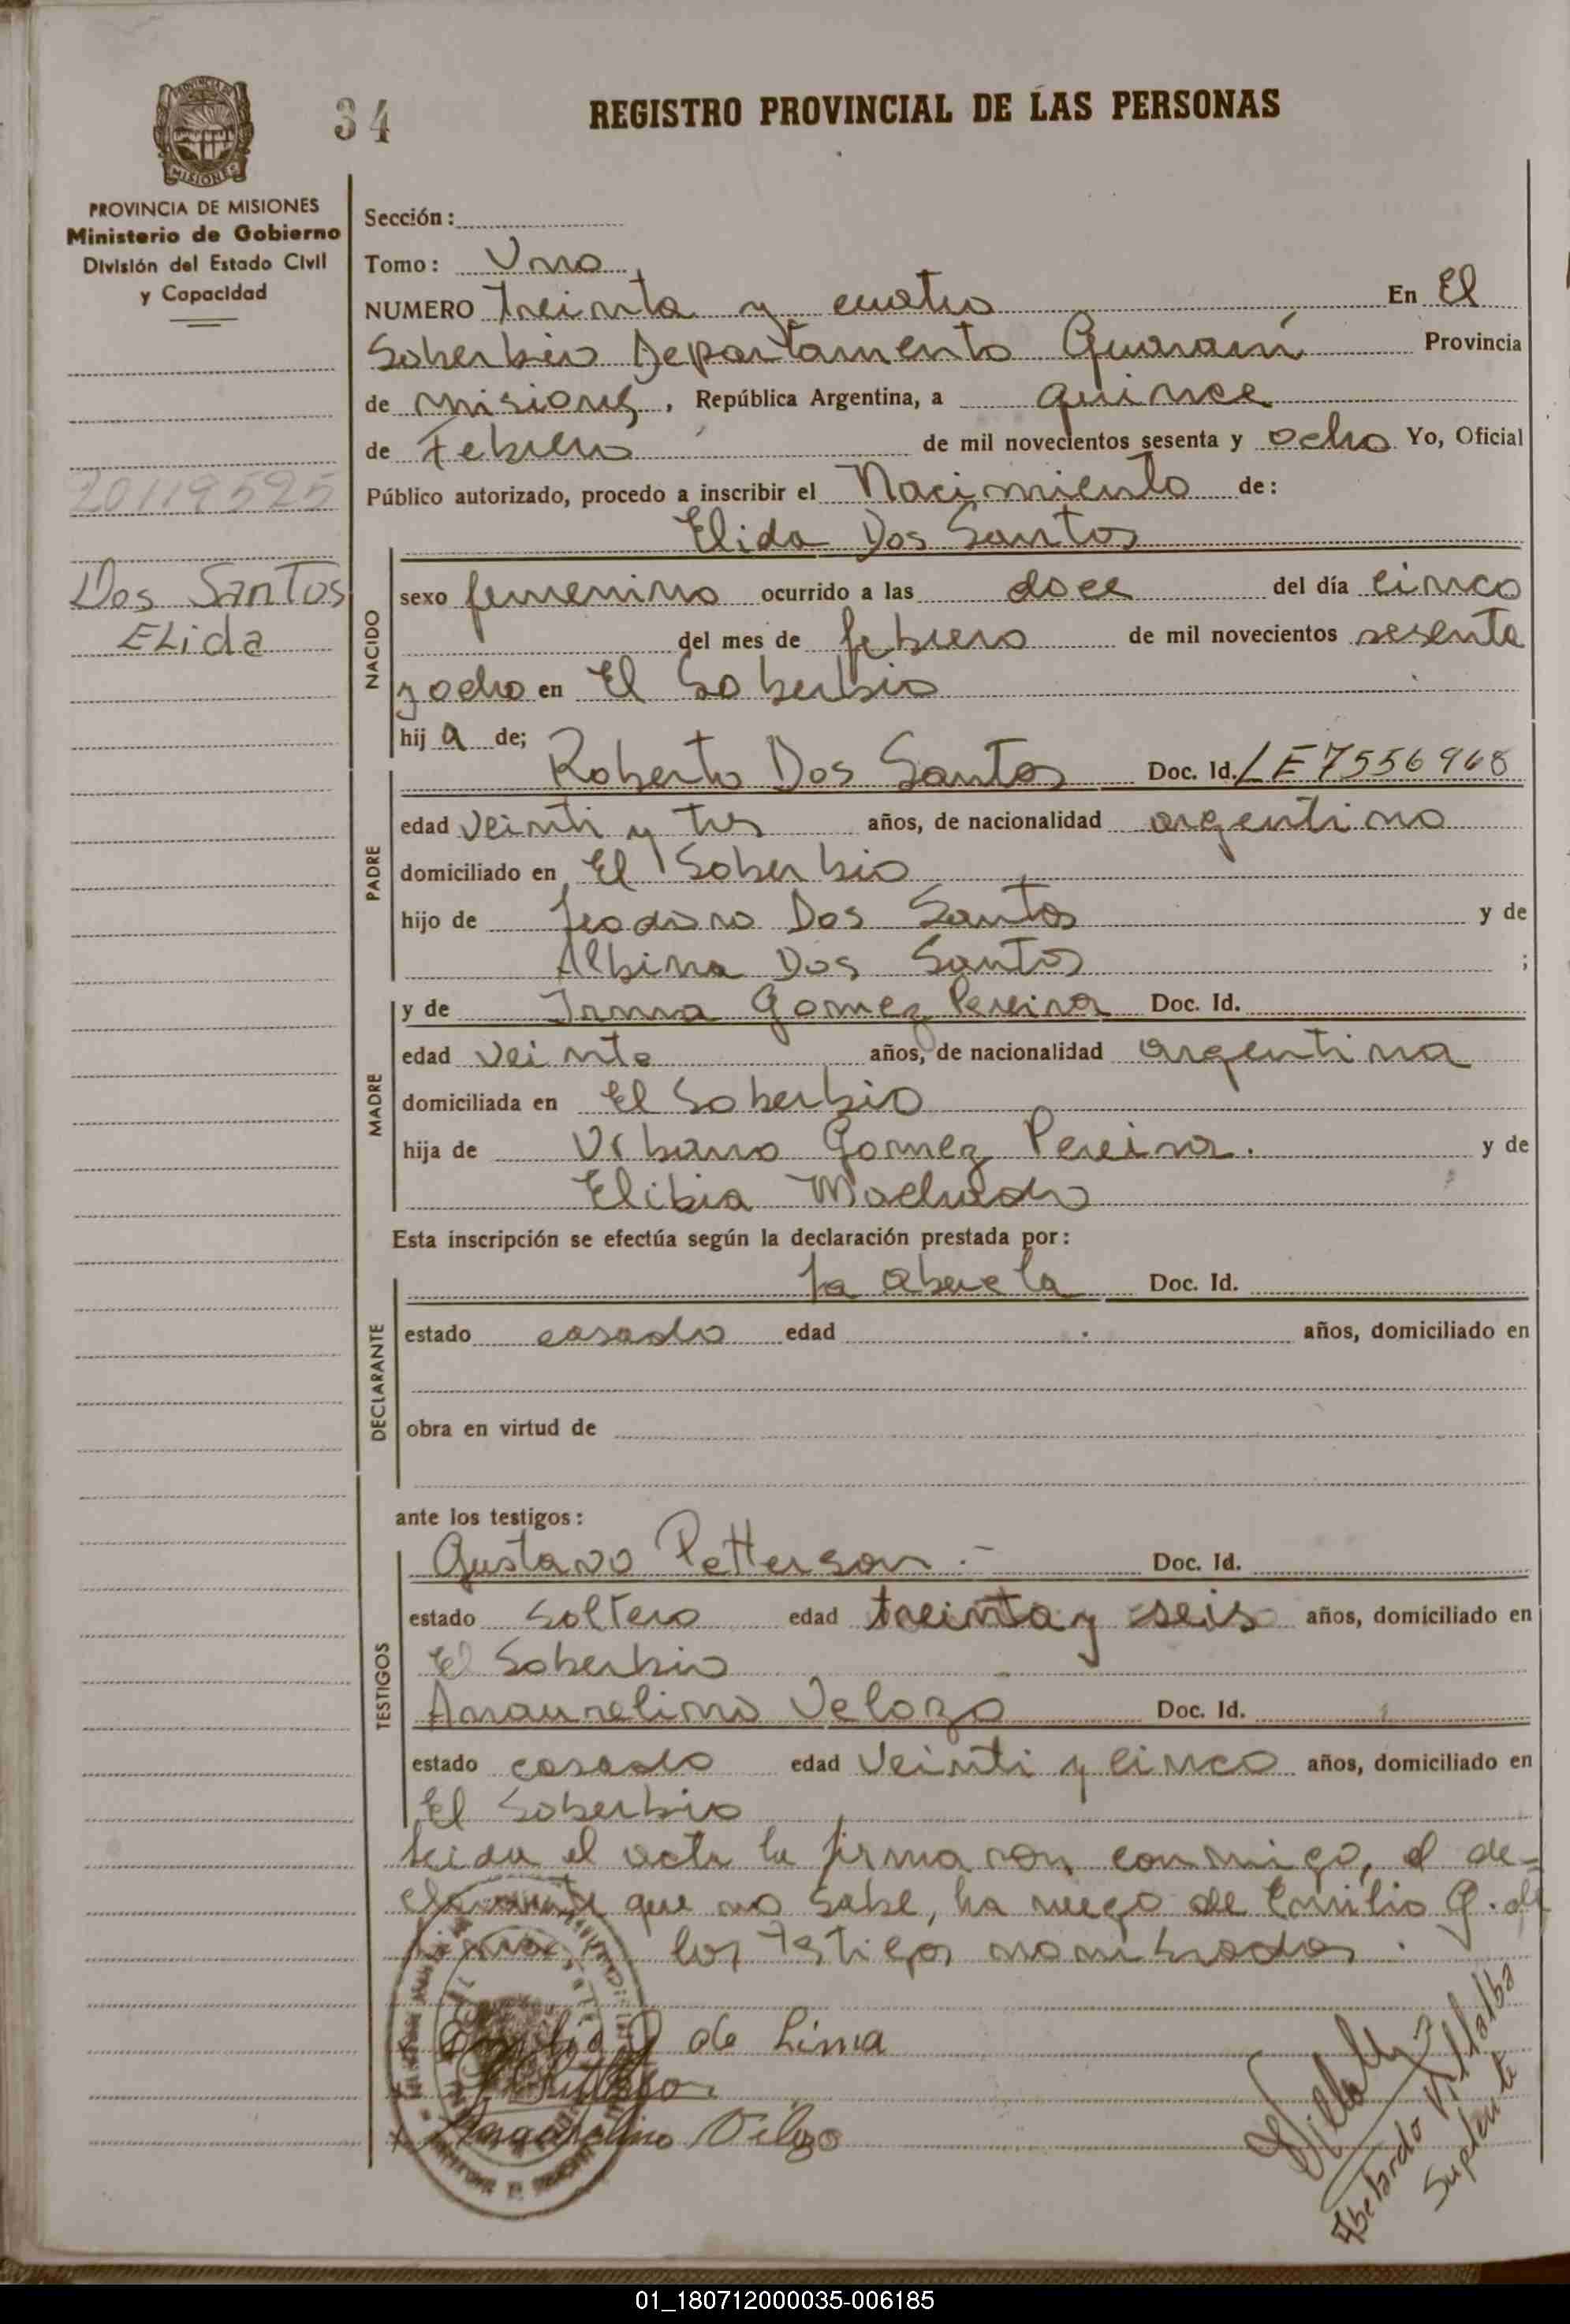 34
REGISTRO PROVINCIAL DE LAS PERSONAS
MISIONES
PROVINCIA DE MISIONES
Ministerio de Gobierno
División del Estado Civil
y Capacidad
20119525
Dos Santos
ELida
Sección:
Tomo: Uno
NUMERO treinta y cuatro En El
Soberbio Departamento Guaraní Provincia
de Misiones, República Argentina, a quince
de Febrero de mil novecientos sesenta y ocho Yo, Oficial
Público autorizado, procedo a inscribir el Nacimiento de:
Elida Dos Santos
NACIDO
sexo femenino ocurrido a las doce del día cinco
del mes de febrero de mil novecientos sesenta
y ocho en El Soberbio
hij a de;
PADRE
Roberto Dos Santos Doc. Id. LE 7556968
edad veinti y tres años, de nacionalidad argentino
domiciliado en El Soberbio
hijo de Teodoro Dos Santos y de
Albina Dos Santos ;
MADRE
y de Irma Gomez Pereira Doc. Id.
edad veinte años, de nacionalidad argentina
domiciliada en El Soberbio
hija de Urbano Gomez Pereira. y de
Elibia Machado
Esta inscripción se efectúa según la declaración prestada por:
DECLARANTE
la abuela Doc. Id.
estado casado edad años, domiciliado en
obra en virtud de
ante los testigos:
TESTIGOS
Gustavo Petterson.- Doc. Id.
estado soltero edad treinta y seis años, domiciliado en
El Soberbio
Amaurelino Velozo Doc. Id.
estado casado edad veinti y cinco años, domiciliado en
El Soberbio
Leida el acta la firmaron conmigo, el de-
clarante que no sabe, ha ruego de Emilio G. de
Lima, los testigos nombrados.
Emilio G de Lima
Velozo
Villalba
Abelardo Villalba
Suplente
01_180712000035-006185